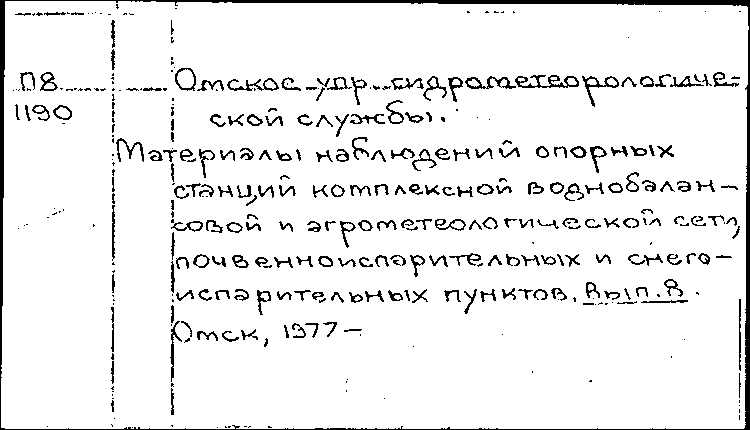 П8 Омское упр. гидрометеорологиче-
1190 ской службы.
Материалы наблюдений опорных
станций комплексной воднобалан-
совой и агрометеологической сети,
почвенноиспарительных и снего-
испарительных пунктов. Вып. 8.
Омск, 1977 –